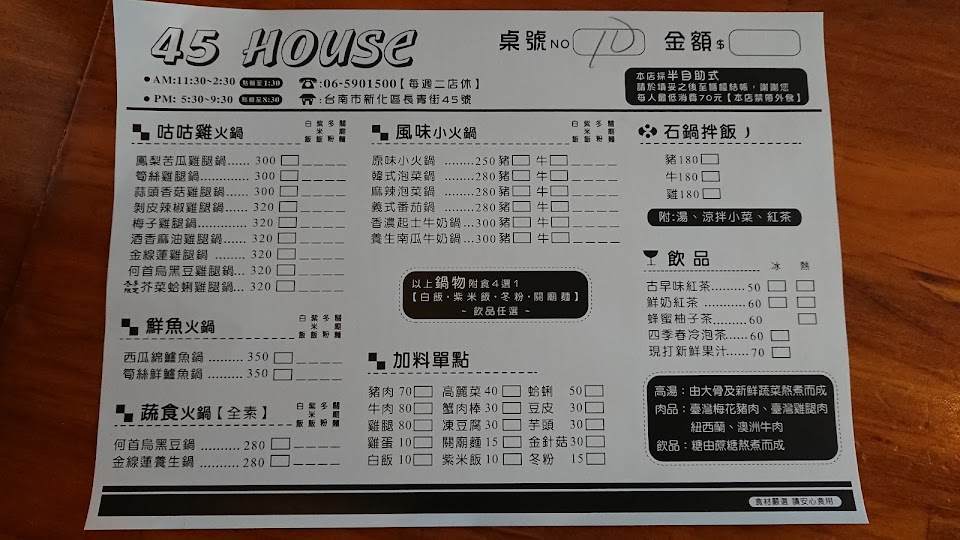 45 HOUSE
桌號NO 10 金額$
●AM:11:30~2:30 點餐至1:30 ☎:06-5901500【每週二店休】
●PM: 5:30~9:30 點餐至8:30 ☎:台南市新化區長青街45號
本店採半自助式
請於填妥之後至櫃檯結帳,謝謝您
每人最低消費70元【本店禁帶外食】
咕咕雞火鍋 白飯 紫米飯 冬粉 關廟麵
鳳梨苦瓜雞腿鍋...... 300
筍絲雞腿鍋............. 300
蒜頭香菇雞腿鍋...... 300
剝皮辣椒雞腿鍋...... 320
梅子雞腿鍋............. 320
酒香麻油雞腿鍋...... 320
金線蓮雞腿鍋 ........ 320
何首烏黑豆雞腿鍋... 320
冬季限定 芥菜蛤蜊雞腿鍋... 320
鮮魚火鍋 白飯 紫米飯 冬粉 關廟麵
西瓜綿鱸魚鍋 ......... 350
筍絲鮮鱸魚鍋 ......... 350
蔬食火鍋【全素】 白飯 紫米飯 冬粉 關廟麵
何首烏黑豆鍋 .......... 280
金線蓮養生鍋 .......... 280
風味小火鍋 白飯 紫米飯 冬粉 關廟麵
原味小火鍋 ........250 豬 牛
韓式泡菜鍋 ........280 豬 牛
麻辣泡菜鍋 ........280 豬 牛
義式番茄鍋 ........280 豬 牛
香濃起士牛奶鍋...300 豬 牛
養生南瓜牛奶鍋...300 豬 牛
以上鍋物附食4選1
【白飯・紫米飯・冬粉・關廟麵】
~ 飲品任選 ~
加料單點
豬肉 70 高麗菜 40 蛤蜊 50
牛肉 80 蟹肉棒 30 豆皮 30
雞腿 80 凍豆腐 30 芋頭 30
雞蛋 10 關廟麵 15 金針菇 30
白飯 10 紫米飯 10 冬粉 15
石鍋拌飯
豬180
牛180
雞180
附:湯、涼拌小菜、紅茶
飲品 冰 熱
古早味紅茶........50
鮮奶紅茶 ..........60
蜂蜜柚子茶........60
四季春冷泡茶.....60
現打新鮮果汁.....70
高湯:由大骨及新鮮蔬菜熬煮而成
肉品:臺灣梅花豬肉、臺灣雞腿肉
紐西蘭、澳洲牛肉
飲品:糖由蔗糖熬煮而成
食材嚴選 請安心食用